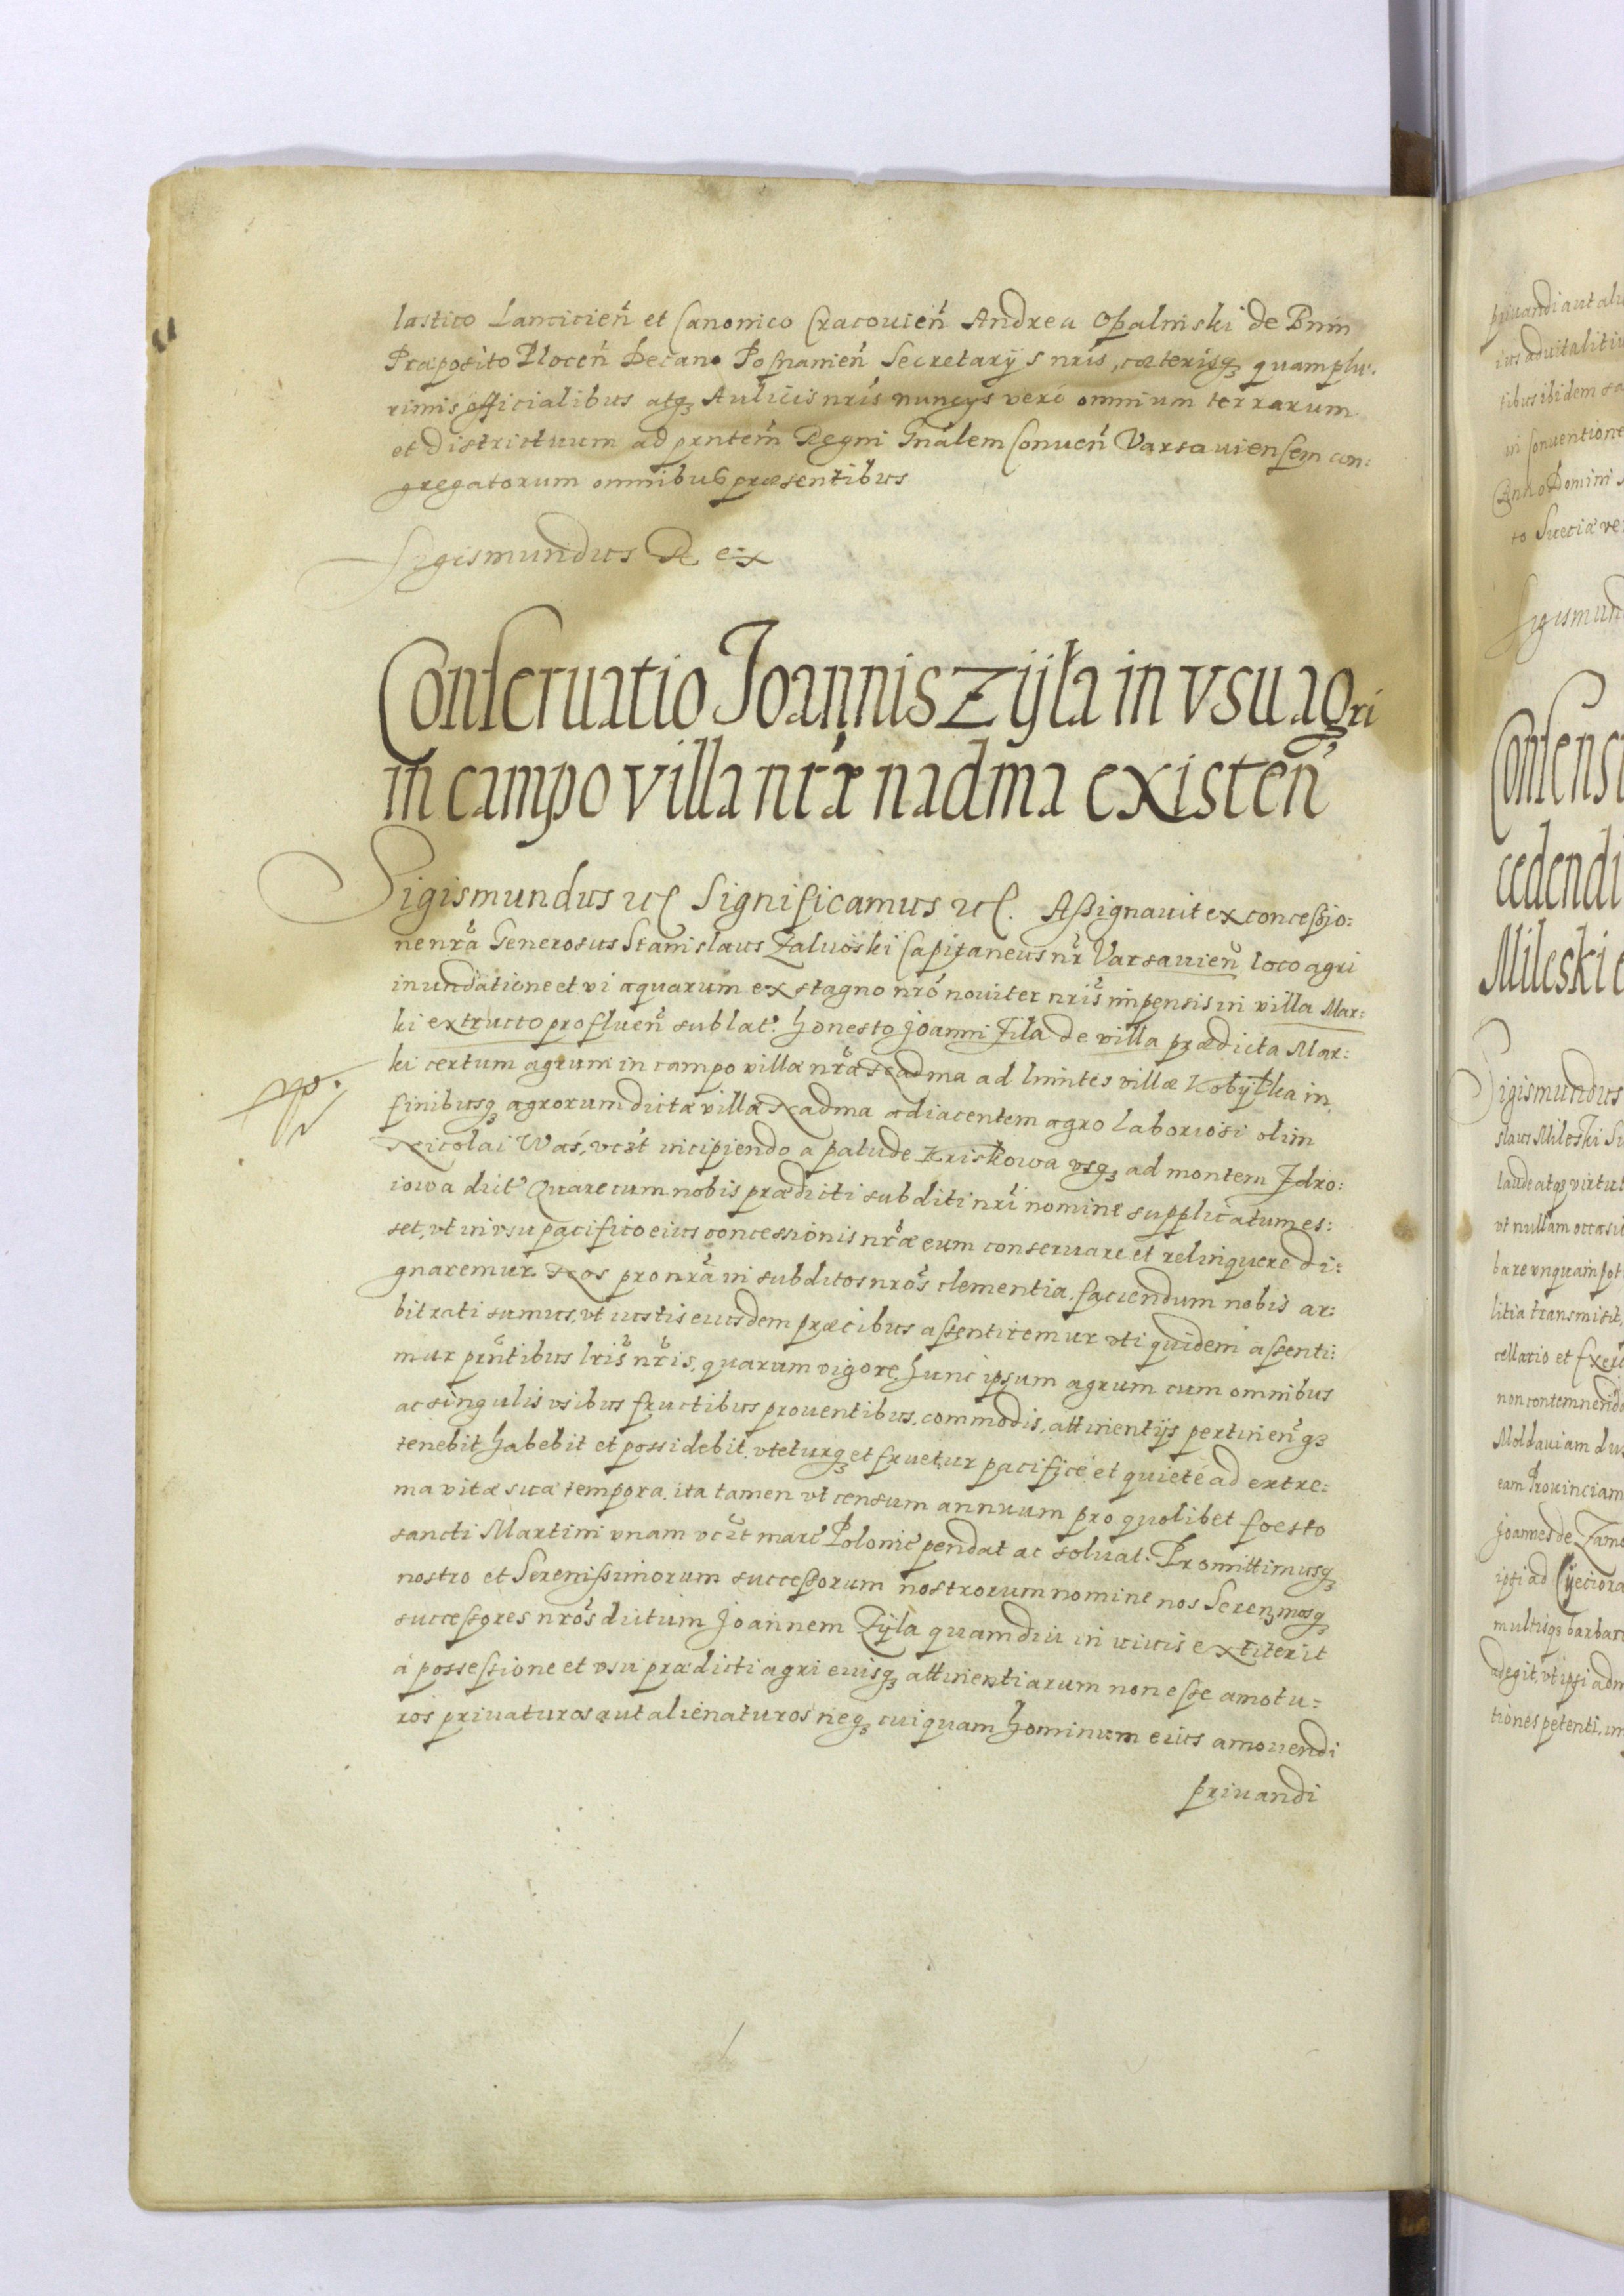 lastico Lancicien̄ et Canonico Cracovien̄ Andrea Opalniski de Bnin
Præposito Plocen̄ Decano Posnanien̄ Secretarÿs nris, cæterisq3 quamplu:
rimis officialibus atq3 Aulicis nris nuncÿs veró omnium terrarum
et Districtuum ad prntem̄ Regni Gnalem Conuen̄ Varsauiensem con:
gregatorum omnibus præsentibus
Sigismundus Rex
Conseruatio Joannis Zÿła in vsu agri
in campo villa nrǽ nadma existen̄
Sigismundus ec Significamus ec. Assignauit ex concessio:
ne nrā Generosus Stanislaus Zaluoski Capitaneus nr̄ Varsauien̄ loco agri
inundatione et vi aquarum ex stagno nro nouiter nris impensis in villa Mar:
ki extructo profluen̄ sublat. Honesto Joanni Zila de villa prædicta Mar:
ki certum agrum in campo villæ nræ Nadma ad limites villæ Kobÿłka in
finibusq3 agrorum dictæ villæ Nadma adiacentem agro laboriosi olim
Nicolai Waś, vczt incipiendo a palude Kriskowa vsq3 ad montem Zdro:
iowa dict. Quare cum nobis prædicti subditi nri nomine supplicatum es:
set, vt in vsu pacifico eius concessionis nræ eum conseruare et relinquere di:
gnaremur. Nos pro nrā in subditos nros clementia, faciendum nobis ar:
bitrati sumus, vt iustis eiusdem præcibus assentiremur vti quidem assenti:
mur prntibus lris nris, quarum vigore, hunc ipsum agrum cum omnibus
ac singulis vsibus fructibus prouentibus, commodis, attinentÿs pertinen̄q3
tenebit habebit et possidebit, vteturq3 et fruetur pacificè et quietè ad extre:
ma vitæ suæ tempora, ita tamen vt censum annuum pro quolibet foesto
sancti Martini vnam vczt marc̄ Polonic̄ pendat ac soluat. Promittimusq3
nostro et Serenissimorum successorum nostrorum nomine nos Seren3mosq3
successores nros dictum Joannem Zÿla quamdiu in viuis extiterit
á possessione et vsu prædicti agri euisq3 attinentiarum non esse amotu:
ros priuaturos aut alienaturos neq3 cuiquam hominum eius amouendi
priuandi